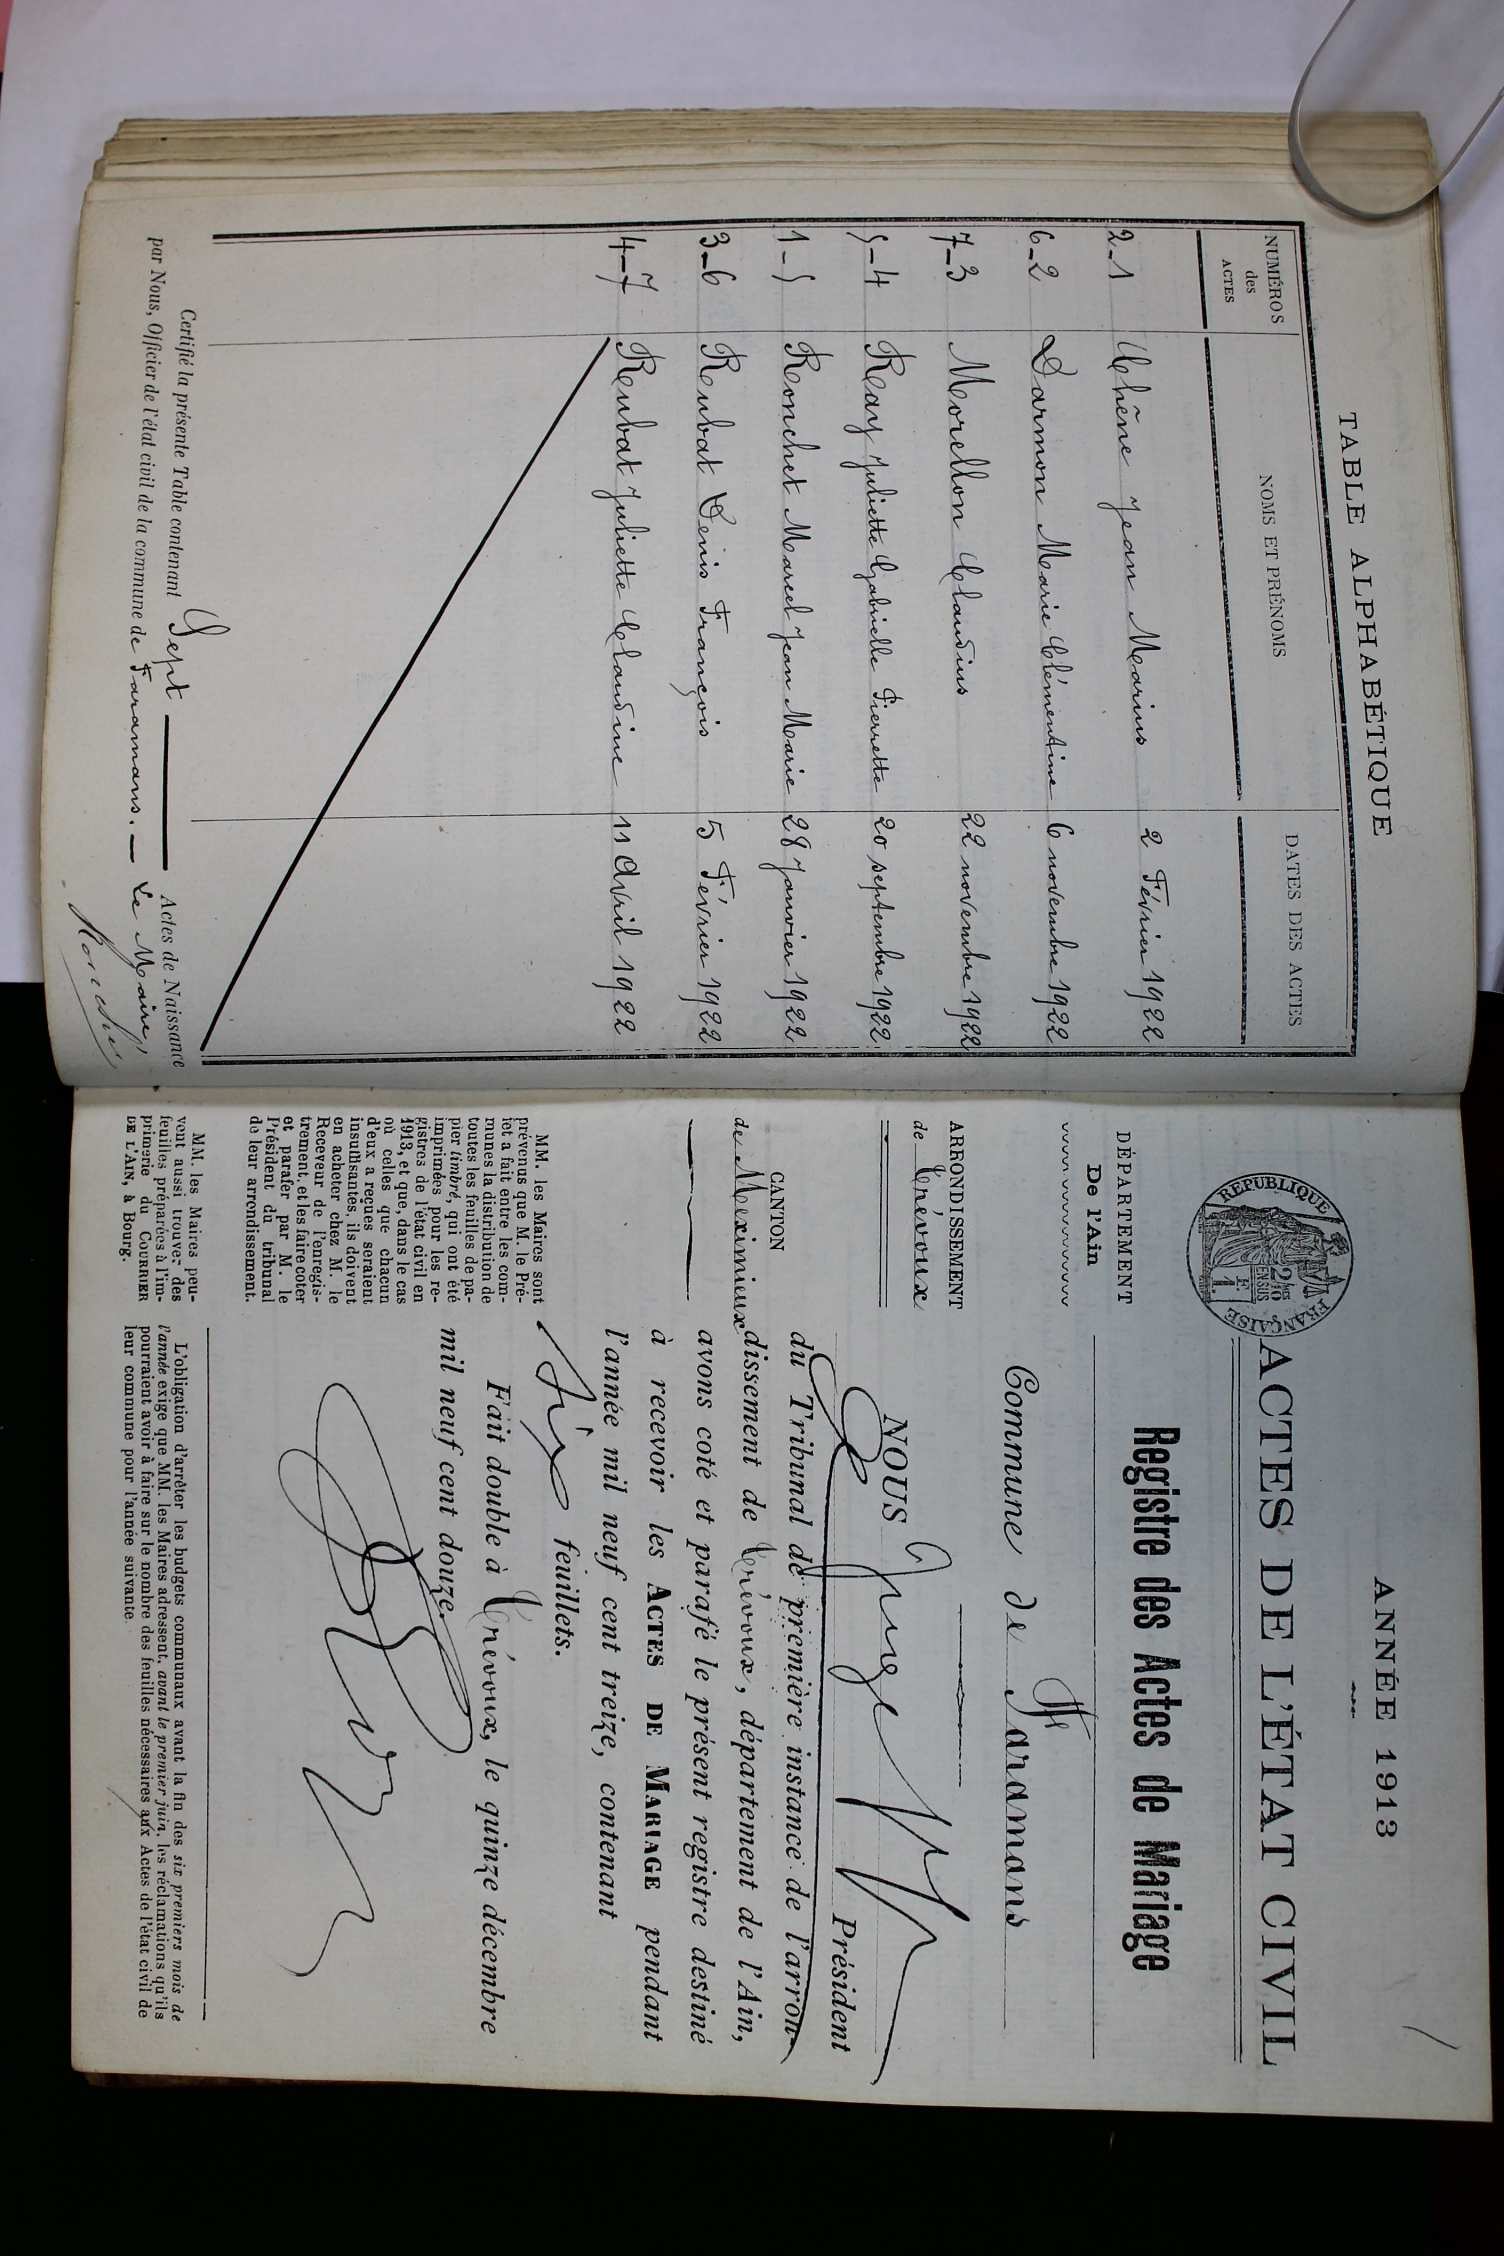 TABLE ALPHABÉTIQUE
NUMÉROS des ACTES
NOMS ET PRÉNOMS
DATES DES ACTES
2-1 Chêne Jean Marius 2 Février 1922
6-2 Darmon Marie Clémentine 6 novembre 1922
7-3 Morellon Claudius 22 novembre 1922
5-4 Ray Juliette Gabrielle Pierrette 20 septembre 1922
1-5 Ronchet Marcel Jean Marie 28 Janvier 1922
3-6 Rubat Denis François 5 Février 1922
4-7 Rubat Juliette Claudine 11 Avril 1922
Certifié la présente Table contenant Sept Actes de Naissance
par Nous, Officier de l'état civil de la commune de Faramans. — Le Maire,
ANNÉE 1913
ACTES DE L'ÉTAT CIVIL
RÉPUBLIQUE FRANÇAISE
2/10 EN SUS
1 F.
DÉPARTEMENT
De l'Ain
ARRONDISSEMENT
de Trévoux
CANTON
de Meximieux
MM. les Maires sont
prévenus que M. le Pré-
fet a fait entre les com-
munes la distribution de
toutes les feuilles de pa-
pier timbré, qui ont été
imprimées pour les re-
gistres de l'état civil en
1913, et que, dans le cas
où celles que chacun
d'eux a reçues seraient
insuffisantes, ils doivent
en acheter chez M. le
Receveur de l'enregis-
trement, et les faire coter
et parafer par M. le
Président du tribunal
de leur arrondissement.
MM. les Maires peu-
vent aussi trouver des
feuilles préparées à l'im-
primerie du COURRIER
DE L'AIN, à Bourg.
Registre des Actes de Mariage
Commune de Faramans
NOUS Juge Président
du Tribunal de première instance de l'arron-
dissement de Trévoux, département de l'Ain,
avons coté et parafé le présent registre destiné
à recevoir les ACTES DE MARIAGE pendant
l'année mil neuf cent treize, contenant
Six feuillets.
Fait double à Trévoux, le quinze décembre
mil neuf cent douze.
L'obligation d'arrêter les budgets communaux avant la fin des six premiers mois de
l'année exige que MM. les Maires adressent, avant le premier juin, les réclamations qu'ils
pourraient avoir à faire sur le nombre des feuilles nécessaires aux Actes de l'état civil de
leur commune pour l'année suivante.